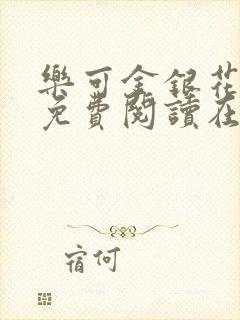 樂可金銀花
免費閱讀在
宿何